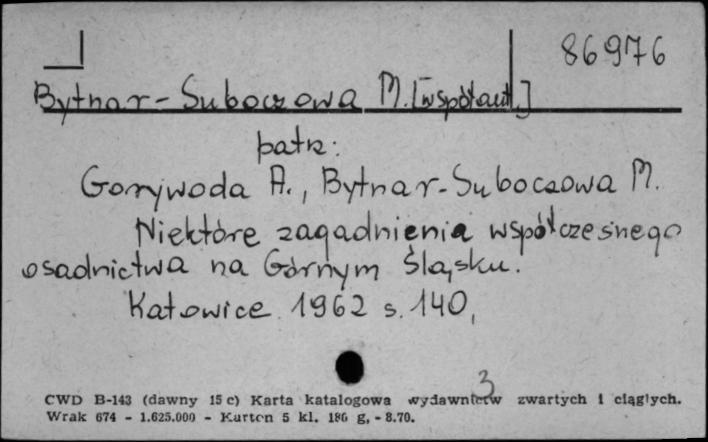 86976
Bytnar-Suboczowa M. [współaut.]
patrz:
Gorywoda A., Bytnar-Suboczowa M.
Niektóre zagadnienia współczesnego
osadnictwa na Górnym Śląsku.
Katowice 1962 s. 140,
3
CWD B-143 (dawny 15 c) Karta katalogowa wydawnictw zwartych i ciągłych.
Wrak 674 - 1.625.000 - Karton 5 kl. 180 g, - 8.70.